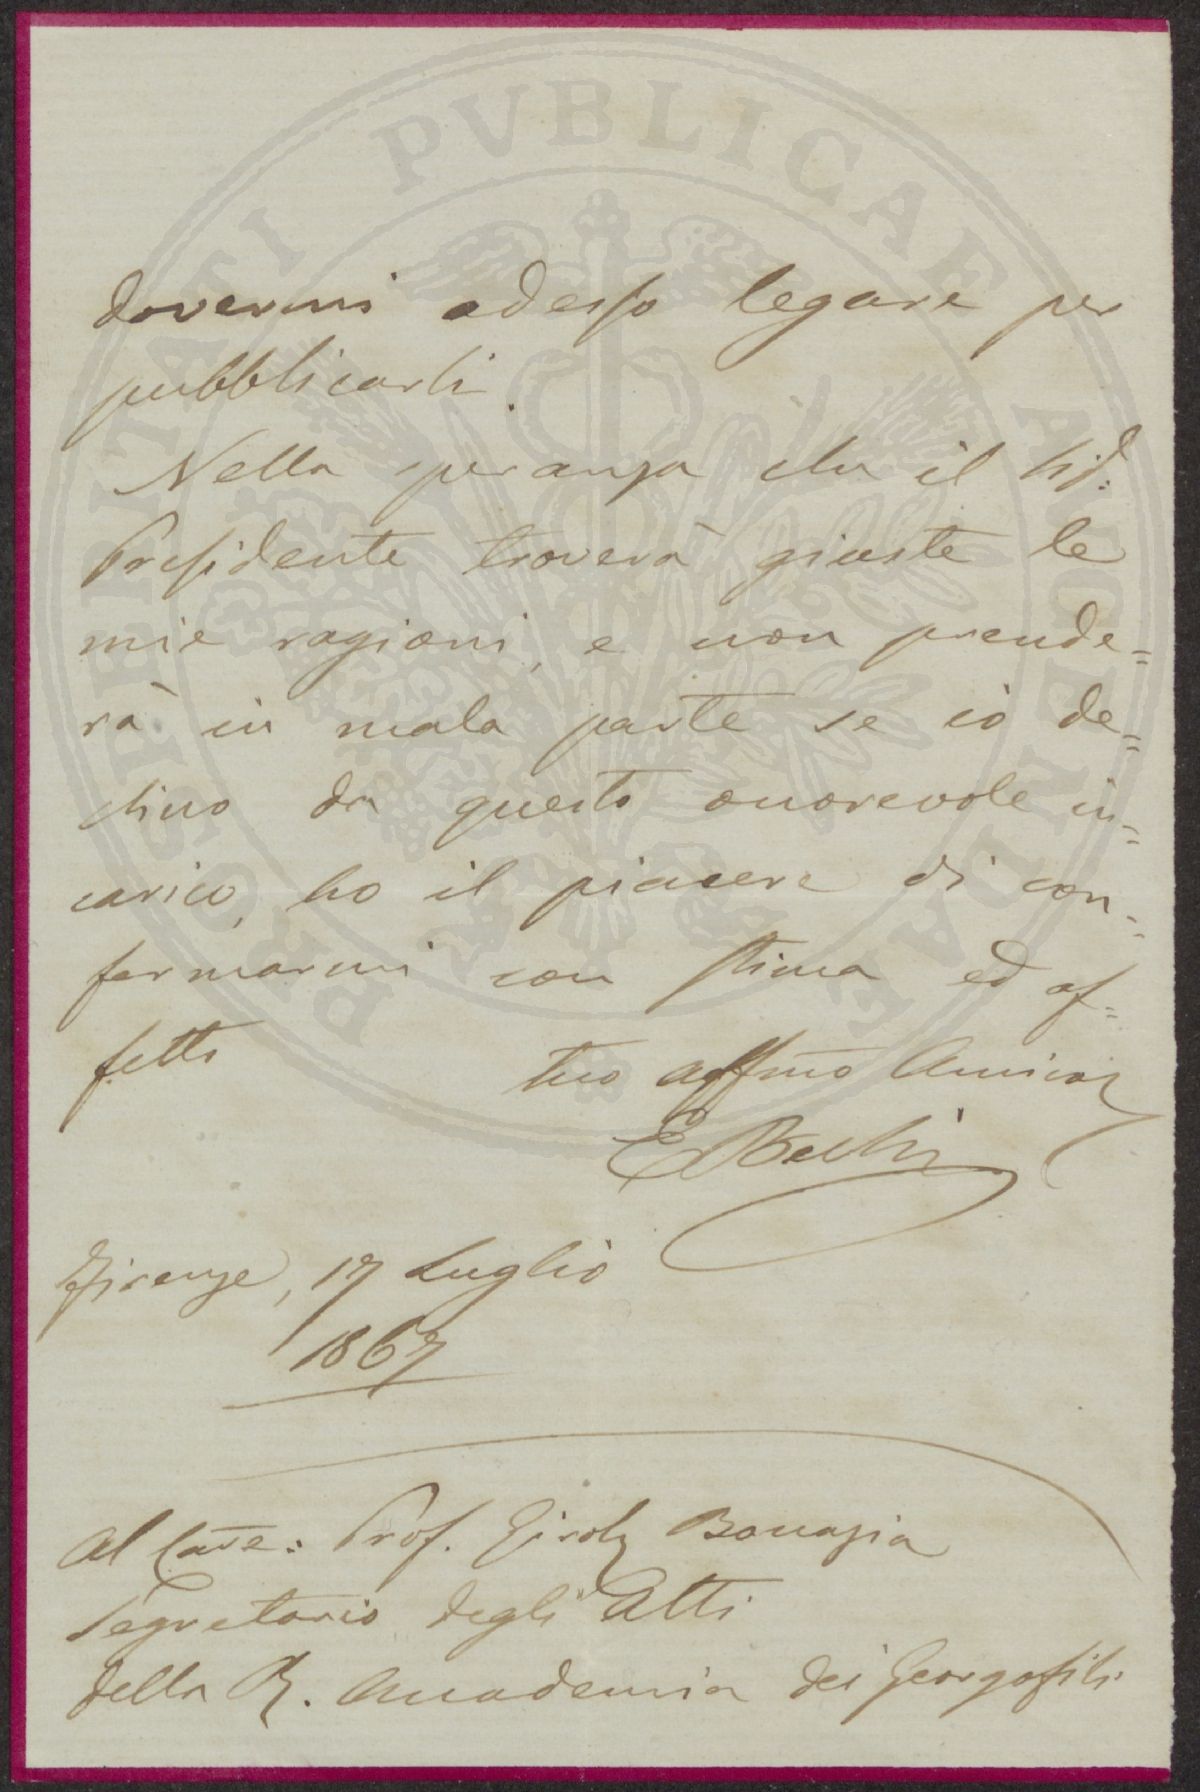 PROSPERITATI PVBLICAE AVGENDAE
dovermi adesso legare per
pubblicarli.
Nella speranza che il Sig:
Presidente troverà giuste le
mie ragioni, e non prende=
rà in mala parte se io de=
clino da questo onorevole in=
carico, ho il piacere di con=
fermarmi con stima ed af=
fetto
tuo affmo Amico
E Bechi
Firenze, 17 Luglio
1867
Al Cave: Prof. Girol. Bonazia
Segretario degli Atti
della R. Accademia dei Georgofili